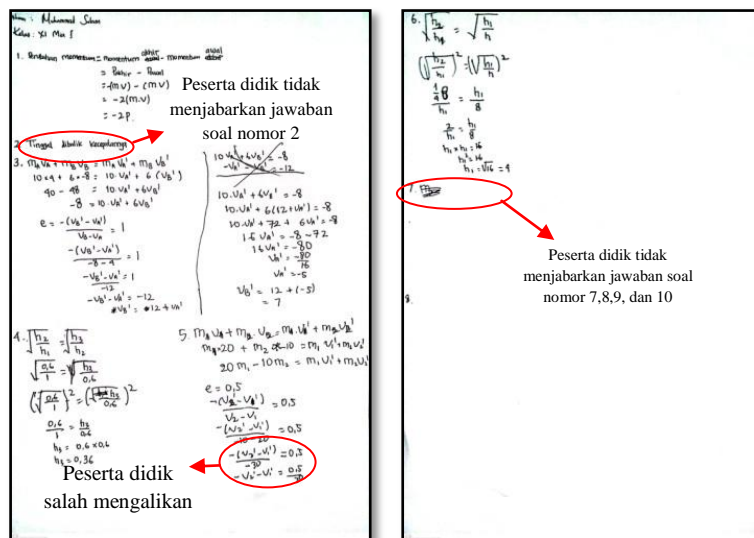 Nama : Muhammad
Kelas : XI Mia 5
1. Perubahan momentum = momentum akhir - momentum awal
= Pakhir - Pawal
= -(mv) - (mv)
= -2(m.v)
= -2P.
Peserta didik tidak
menjabarkan jawaban
soal nomor 2
2. Tinggal dibalik kecepatannya
3. mAVA + mBVB = mAVA' + mBVB'
10×4 + 6×-8 = 10.VA' + 6(VB')
40 - 48 = 10.VA' + 6VB'
-8 = 10.VA' + 6VB'
e = -(VB'-VA')/VB-VA = 1
-(VB'-VA')/-8-4 = 1
-VB'-VA'/-12 = 1
-VB'-VA' = -12
VB' = 12 + VA'
10VA' + 6VB' = -8
= -12
10.VA' + 6VB' = -8
10.VA' + 6(12+VA') = -8
10.VA' + 72 + 6VA' = -8
16VA' = -8-72
16VA' = -80
VA' = -80/16
VA' = -5
VB' = 12 + (-5)
= 7
4. √h2/h1 = √h3/h2
√0,6/1 = √h3/0,6
(√0,6/1)² = (√h3/0,6)²
0,6/1 = h3/0,6
h3 = 0,6 × 0,6
h3 = 0,36
5. m1V1 + m2.V2 = m1.V1' + m2V2'
m1.20 + m2.-10 = m1V1' + m2V2'
20m1 - 10m2 = m1V1' + m2V2'
e = 0,5
-(V2'-V1')/V2-V1 = 0,5
-(V2'-V1')/-10-20 = 0,5
-(V2'-V1')/-30 = 0,5
-V2'-V1' = 0,5/30
Peserta didik
salah mengalikan
6. √h2/h1 = √h1/h
(√h2/h1)² = (√h1/h)²
8
h1 = h1/8
2/h1 = h1/8
h1 × h1 = 16
h1² = 16
h1 = √16 = 4
7.
Peserta didik tidak
menjabarkan jawaban soal
nomor 7,8,9, dan 10
8.